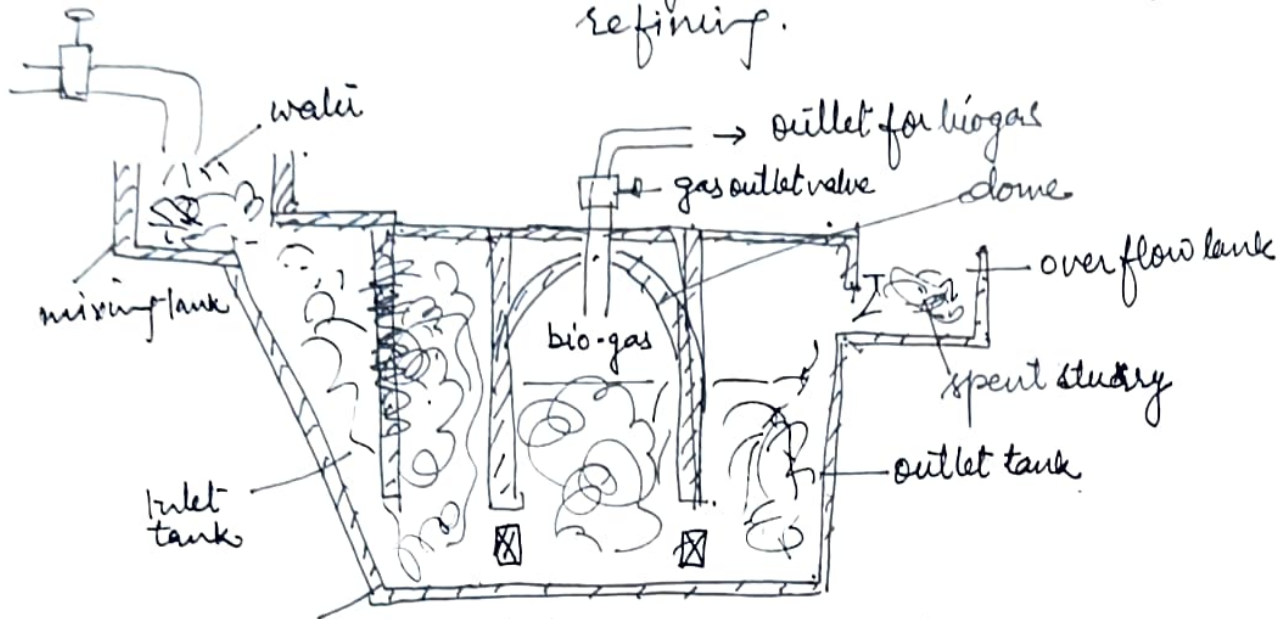 refining.
water
outlet for biogas
gas outlet valve
dome
over flow tank
mixing tank
bio-gas
spent slurry
outlet tank
Inlet
tank